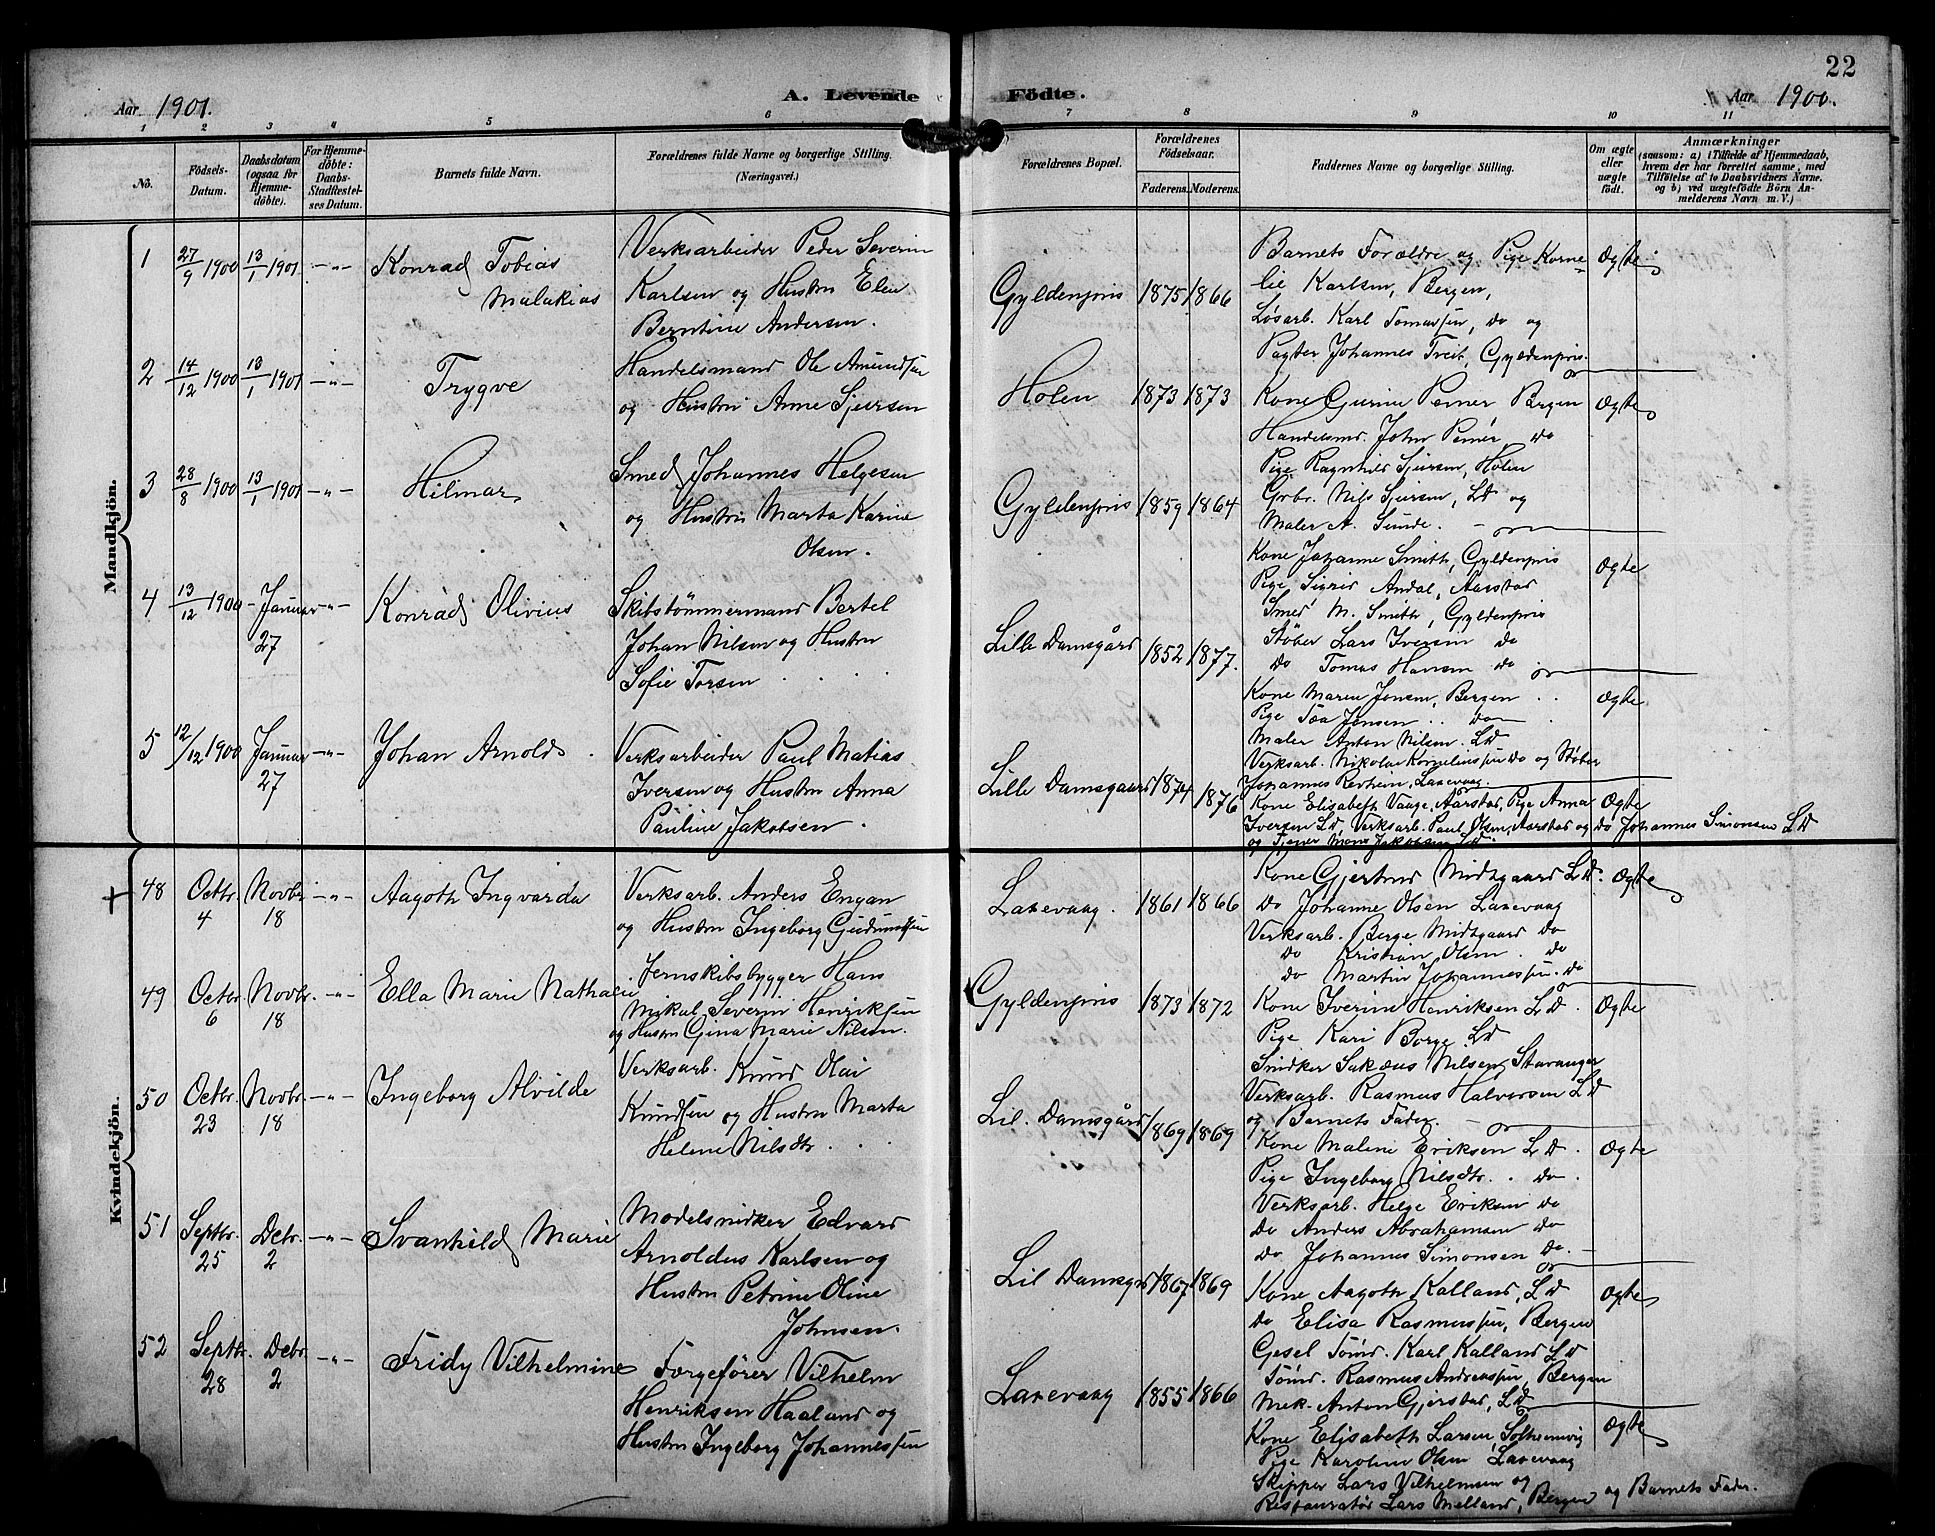 22
Aar 1901.
A. Levende
Födte.
Aar 1900.
1 2 3 4 5 6 7 8 9 10 11
No.
Födsels-
Datum.
Daabsdatum
(ogsaa for
Hjemme-
döbte).
For Hjemme-
döbte:
Daabs-
Stadfæstel-
ses Datum.
Barnets fulde Navn.
Forældrenes fulde Navne og borgerlige Stilling.
(Næringsvei.)
Forældrenes Bopæl.
Forældrenes
Födselsaar.
Faderens. Moderens.
Faddernes Navne og borgerlige Stilling.
Om ægte
eller
uægte
födt.
Anmærkninger
(saasom: a) i Tilfælde af Hjemmedaab,
hvem der har forrettet samme, med
Tilföielse af to Daabsvidners Navne.
og b) ved uægtefödte Börn An-
melderens Navn m. V.)
Mandkjön.
1 27/9 1900 13/1 1901 -"- Konrad Tobias
Malakias
Verksarbeider Peder Severin
Karlsen og Hustru Elen
Berntine Andersen.
Gyldenpris 1875 1866
Barnets Forældre og Pige Korne-
lie Karlsen, Bergen,
Løsarb. Karl Tomassen, do og
Pagter Johannes Treit, Gyldenpris.
Ægte
2 14/12 1900 13/1 1901 -"- Trygve
Handelsmand Ole Amundsen
og Hustru Anne Sjursen
Holen 1873 1873
Kone Gurine Perner Bergen
Handelsmd. John Perner do
Pige Ragnhild Sjursen, Holen
Grbr. Nils Sjursen, Ld og
Maler A. Sunde.
Ægte
3 28/8 1900 13/1 1901 -"- Hilmar
Smed Johannes Helgesen
og Hustru Marta Karine
Olsen.
Gyldenpris 1859 1864
Kone Johanne Smith, Gyldenpris
Pige Sigrid Andal, Aarstad
Smed M. Smith, Gyldenpris
Støber Lars Iversen do
do Tomas Hansen do
Ægte
4 13/12 1900 Januar 27 -"- Konrad Olivius
Skibstømmermand Bertel
Johan Nilsen og Hustru
Sofie Torsen
Lille Damsgård 1852 1877.
Kone Maren Jonsen, Bergen
Pige Tea Jonsen .. do
Maler Anton Nilsen. Ld
Verksarb. Nikolai Korneliussen do og Støber
Johannes Laxevaag
Ægte
5 12/12 1900 Januar 27 -"- Johan Arnold
Verksarbeider Paul Matias
Iversen og Hustru Anna
Pauline Jakobsen.
Lille Damsgaard 1874 1876
Kone Elisabeth Vaage, Aarstad, Pige Anna
Iversen Ld, Verksarb. Paul Olsen, Aarstad og do Johannes Simonsen Ld
og Tjener Mons Jakobsen Ld.
Ægte
Kvindekjön.
48 Octbr. 4 Novbr. 18 -"- Aagoth Ingvarda
Verksarb. Anders Engan
og Hustru Ingeborg Gudmundsen
Laxevaag. 1861 1866
Kone Gjertrud Midtgaard Ld.
do Johanne Olsen Laxevaag
Verksarb. Berge Midtgaard do
do Kristian Olsen do
do Martin Johannessen. do
Ægte
49 Octbr. 6 Novbr. 18 -"- Ella Marie Nathalie
Jernskibsbygger Hans
Mikal Severin Henriksen
og Hustru Gina Marie Nilsen.
Gyldenpris 1873 1872
Kone Iverine Henriksen Ld.
Pige Kari Borge Ld
Snidker Sakæus Nilsen, Stavanger
Verksarb. Rasmus Halvorsen Ld
og Barnets Fader.
Ægte
50 Octbr. 23 Novbr. 18 -"- Ingeborg Alvilde
Verksarb. Knud Olai
Knudsen og Hustru Marta
Helene Nilsdtr.
Lil. Damsgård 1869 1869
Kone Malene Eriksen Ld.
Pige Ingeborg Nilsdtr. . do.
Verksarb. Helge Eriksen do
do Anders Abrahamsen do
do Johannes Simonsen do.
Ægte
51 Septbr. 25 Debr. 2 -"- Svanhild Marie
Modelsnidker Edvard
Arnoldus Karlsen og
Hustru Petrine Oline
Johnsen.
Lil Damsgrd 1867 1869
Kone Aagoth Kalland, Ld
do Elisa Rasmussen, Bergen
Gesel Tømd. Karl Kalland Ld
Tømd. Rasmus Andreassen, Bergen
Mek. Anton Gjerstad, Ld
Ægte
52 Septbr. 28 Debr. 2 -"- Fridy Vilhelmine
Færgefører Vilhelm
Henriksen Haaland og
Hustru Ingeborg Johannessen
Laxevaag 1855 1866
Kone Elisabeth Larsen, Solheimvig
Pige Karoline Olsen Laxevaag
Skipper Lars Vilhelmsen og
Restauratør Lars Melland, Bergen og Barnets Fader.
Ægte